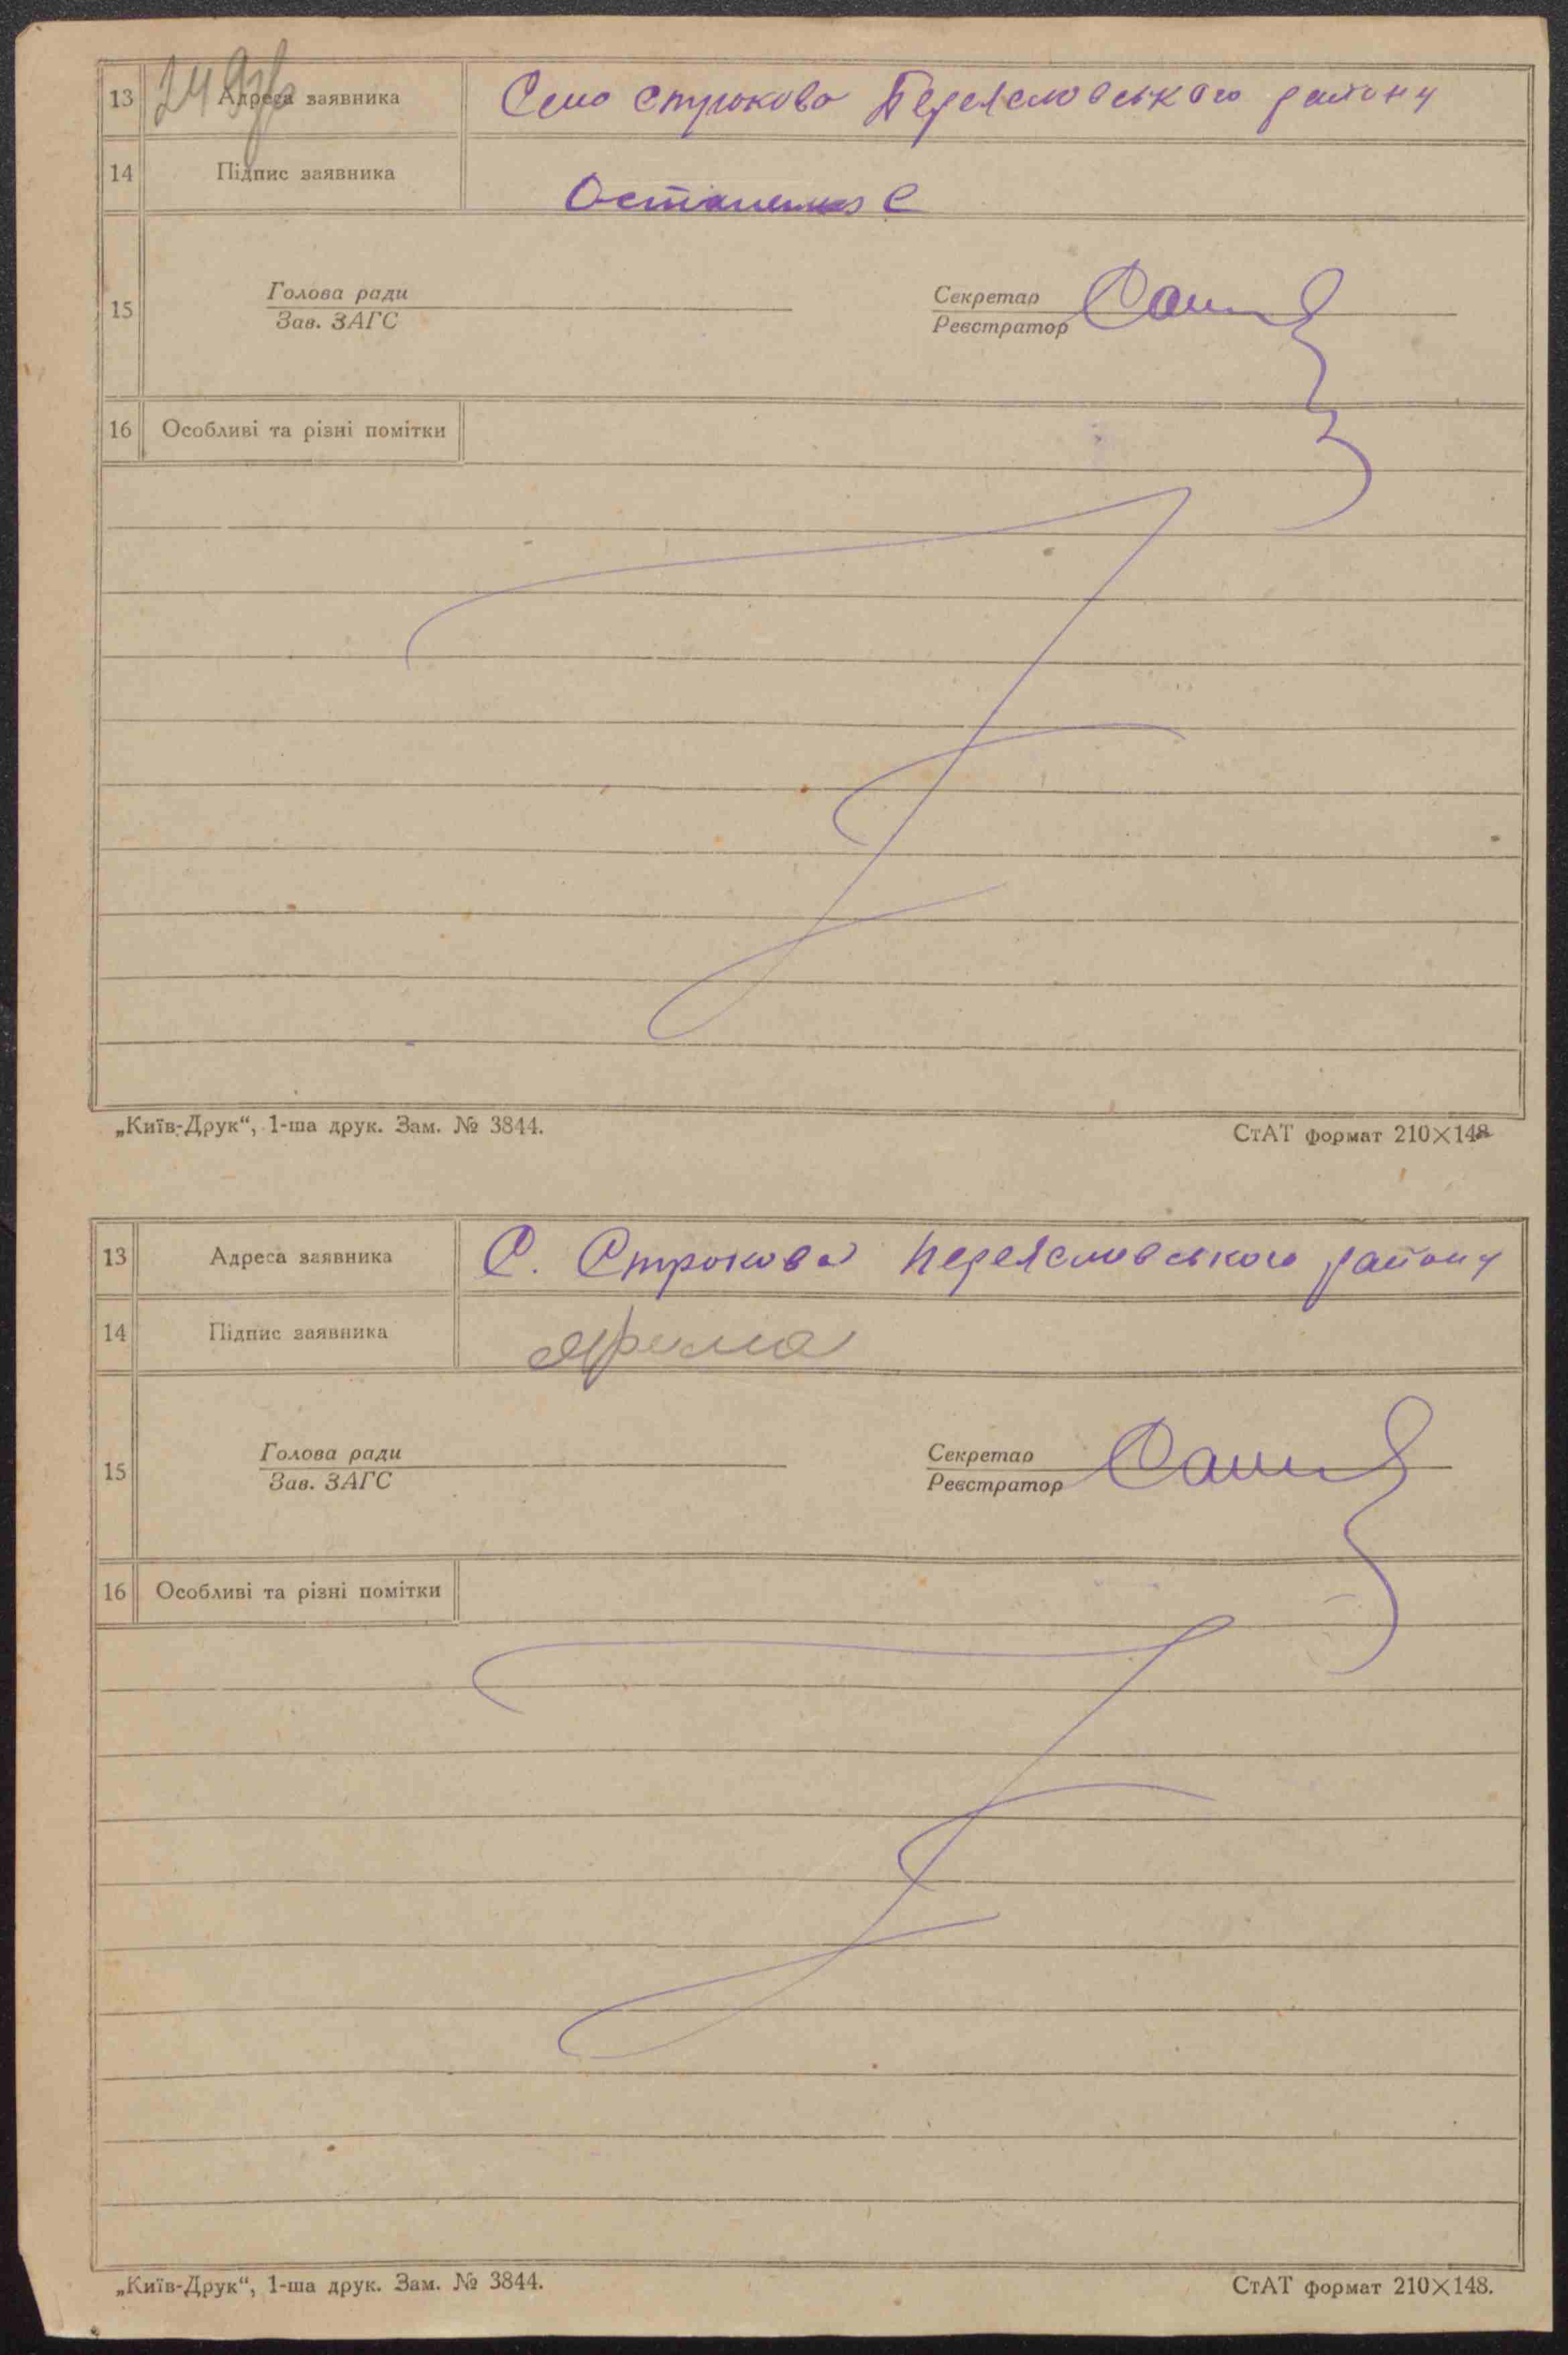 13 Адреса заявника Село Строкова Переяславського району
14 Підпис заявника Остапенко С
15 Голова ради Секретар
Зав. ЗАГС Реєстратор
16 Особливі та різні помітки
„Київ-Друк“, 1-ша друк. Зам. № 3844. СтАТ формат 210×148
13 Адреса заявника С. Строкова Переяславського району
14 Підпис заявника Ярема
15 Голова ради Секретар
Зав. ЗАГС Реєстратор
16 Особливі та різні помітки
„Київ-Друк“, 1-ша друк. Зам. № 3844. СтАТ формат 210×148.